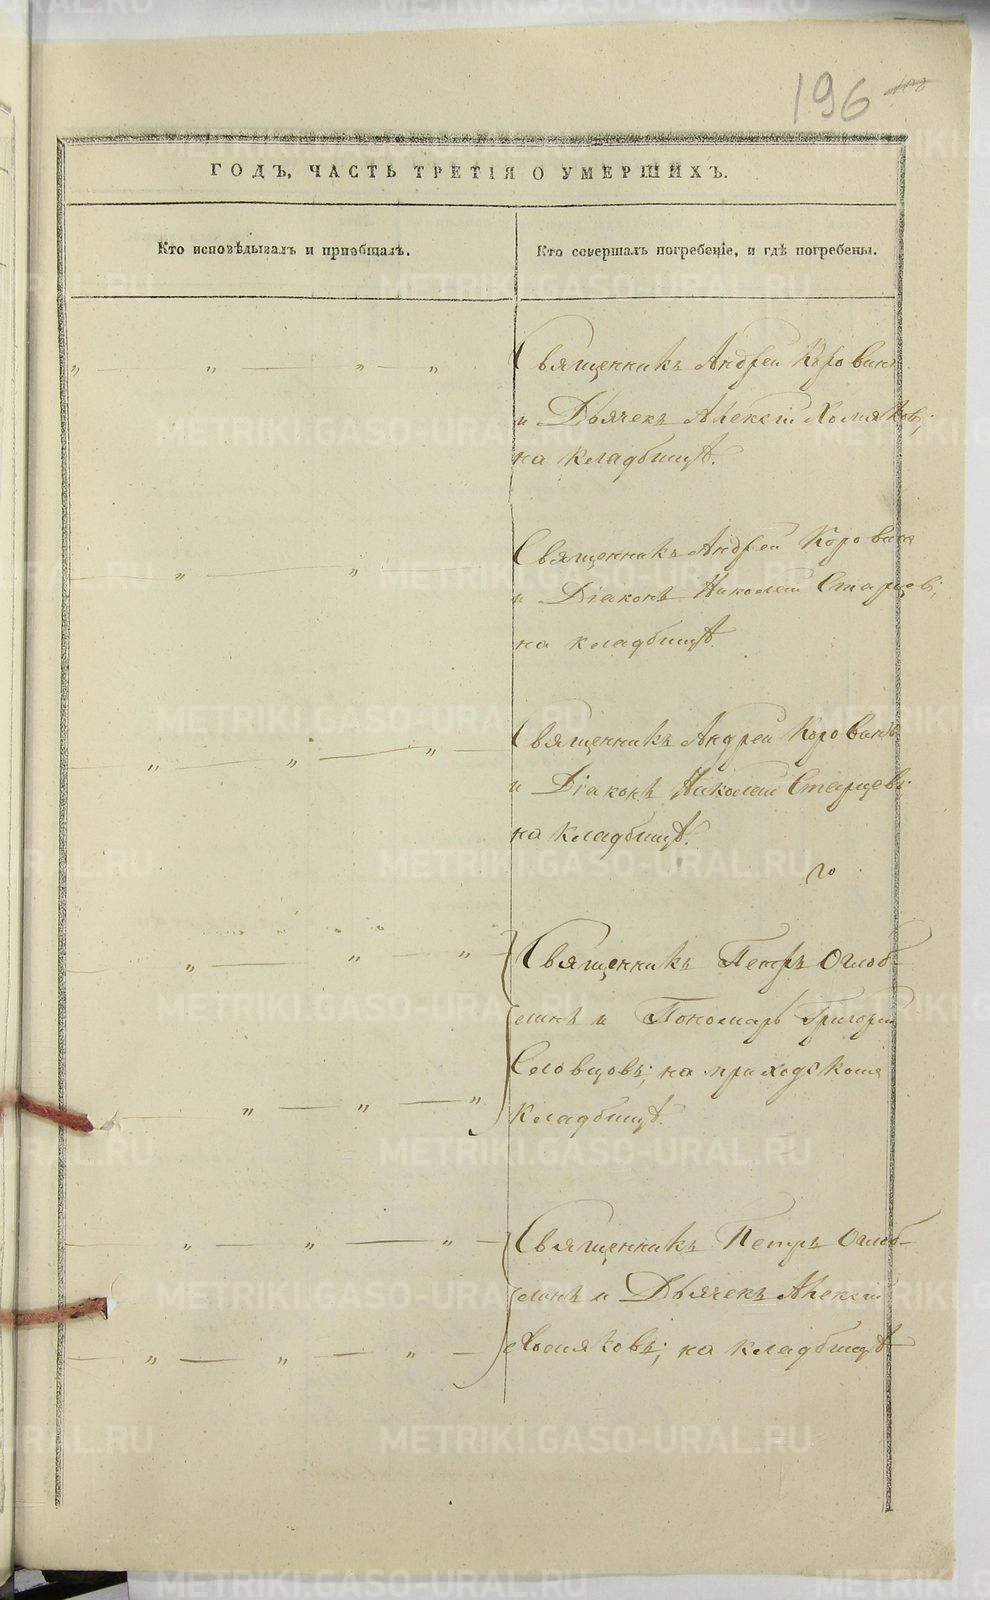 196
ГОДЪ, ЧАСТЬ ТРЕТІЯ О УМЕРШИХЪ.
Кто исповѣдывалъ и пріобщалъ.
Кто совершалъ погребеніе, и гдѣ погребены.
Священникъ Андрей Коровинъ
и Дьячекъ Алексій Хомяковъ;
на кладбищѣ.
Священникъ Андрей Коровинъ
и Діаконъ Николай Старцевъ;
на кладбищѣ.
Священникъ Андрей Коровинъ
и Діаконъ Николай Старцевъ;
на кладбищѣ.
го
Священникъ Петръ Оглоб-
линъ и Пономарь Григорій
Словцовъ; на приходскомъ
кладбищѣ.
Священникъ Петръ Оглоб-
линъ и Дьячекъ Алексій
Хомяковъ; на кладбищѣ
METRIKI.GASO-URAL.RU